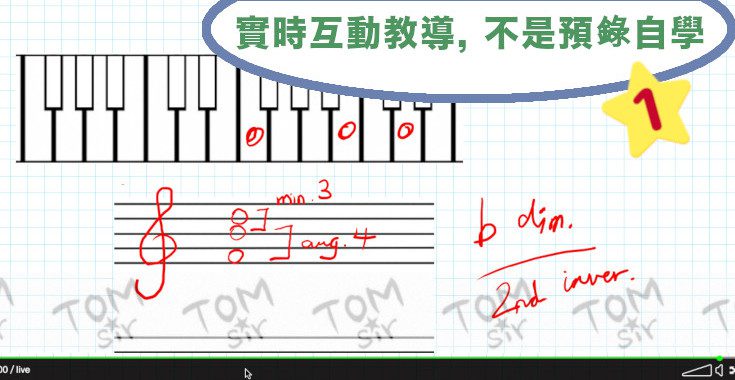 實時互動教導, 不是預錄自學
1
min. 3
aug. 4
b dim.
2nd inver.
TOM Sir TOM Sir TOM Sir TOM Sir TOM
00 / live